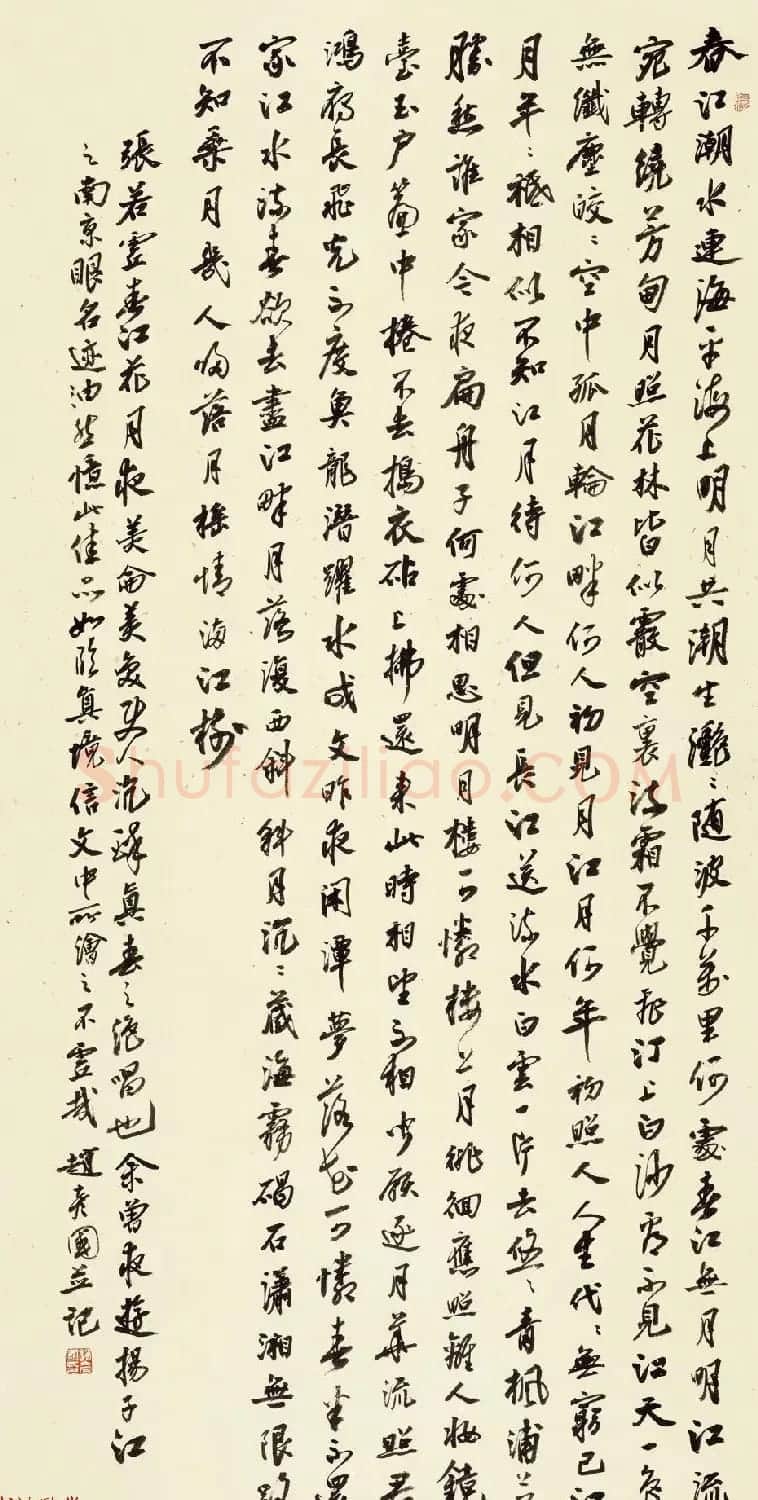 春江潮水連海平海上明月共潮生灩〻随波千萬里何處春江無月明江流
宛轉繞芳甸月照花林皆似霰空裏流霜不覺飛汀上白沙看不見江天一色
無纖塵皎〻空中孤月輪江畔何人初見月江月何年初照人人生代〻無窮已江
月年〻祗相似不知江月待何人但見長江送流水白雲一片去悠〻青楓浦上
勝愁誰家今夜扁舟子何處相思明月樓可憐樓上月徘徊應照離人妝鏡
臺玉户簾中捲不去搗衣砧上拂還來此時相望不相聞願逐月華流照君
鴻雁長飛光不度魚龍潛躍水成文昨夜閑潭夢落花可憐春半不還
家江水流春欲去盡江畔月落復西斜斜月沉〻藏海霧碣石瀟湘無限路
不知乘月幾人歸落月搖情滿江樹
張若虛春江花月夜美侖美奐真春之絕唱也余曾夜遊揚子江
之南京眼名迹油然憶此佳品如臨真境信文中所繪之不虛哉趙彦國並記
Shufaziliao.COM